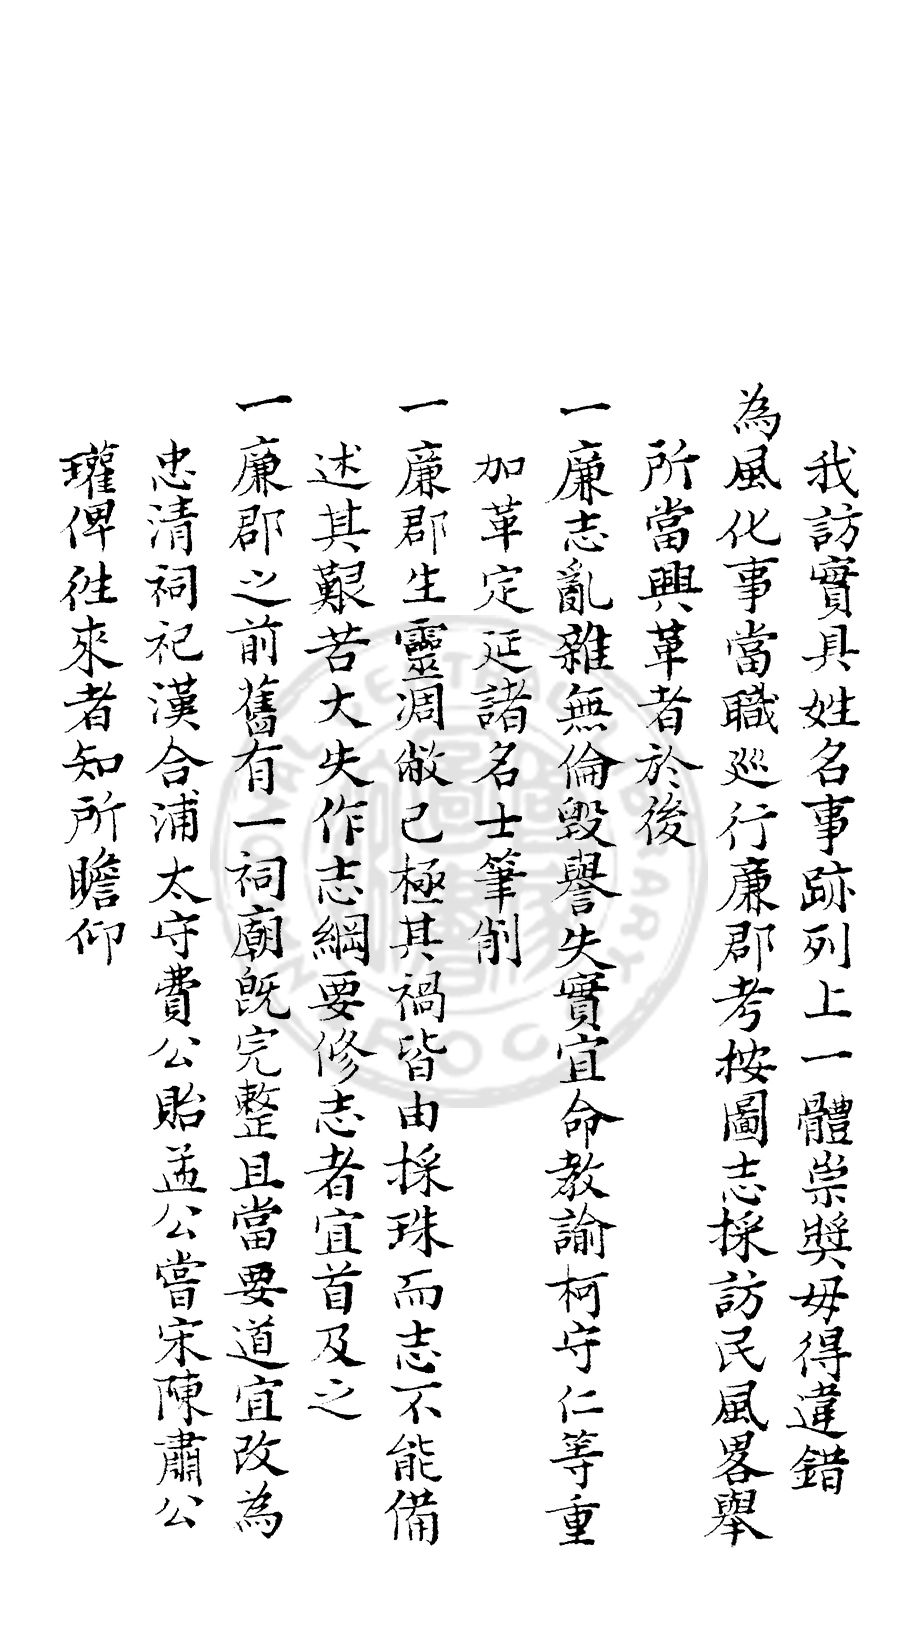 我訪實具姓名事跡列上一體崇獎毋得違錯
為風化事當職巡行廉郡考按圖志採訪民風畧舉
所當興革者於後
一廉志亂雜無倫毀譽失實宜命教諭柯守仁等重
加革定延諸名士筆削
一廉郡生靈凋敝已極其禍皆由採珠而志不能備
述其艱苦大失作志綱要修志者宜首及之
一廉郡之前舊有一祠廟既完整且當要道宜改為
忠清祠祀漢合浦太守費公貽孟公嘗宋陳肅公
瓘俾徃來者知所瞻仰
NATIONAL CENTRAL LIBRARY